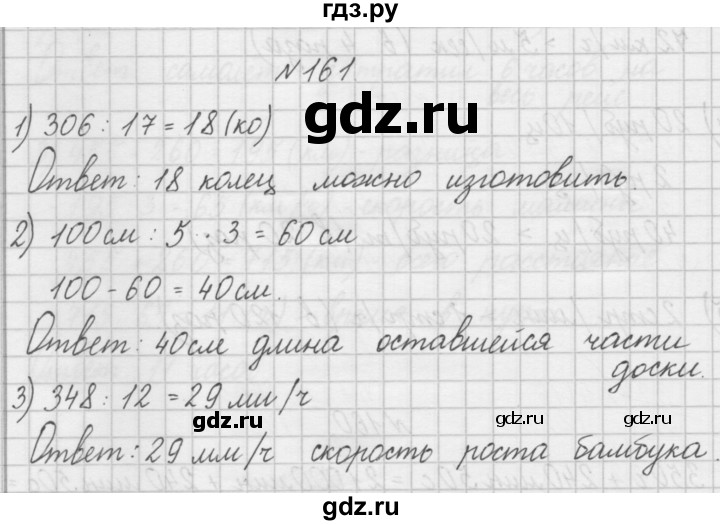 гдз.ру
№161
1) 306 : 17 = 18 (ко)
Ответ: 18 колец можно изготовить.
2) 100см : 5 · 3 = 60см
100 - 60 = 40см.
Ответ: 40см длина оставшейся части
доски.
3) 348 : 12 = 29 мм/ч
Ответ: 29 мм/ч скорость роста бамбука.
gdz.ru
gdz.ru
gdz.ru
gdz.ru
gdz.ru
gdz.ru